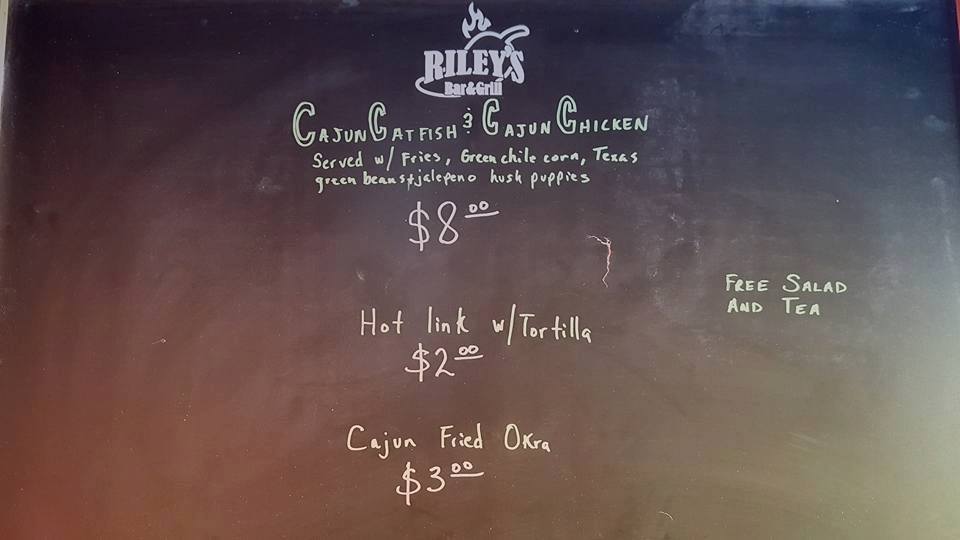 RILEY'S
Bar&Grill
CAJUN CATFISH & CAJUN CHICKEN
Served w/ Fries, Green chile corn, Texas
green beans + jalepeno hush puppies
$8.00
FREE SALAD
AND TEA
Hot link w/Tortilla
$2.00
Cajun Fried Okra
$3.00